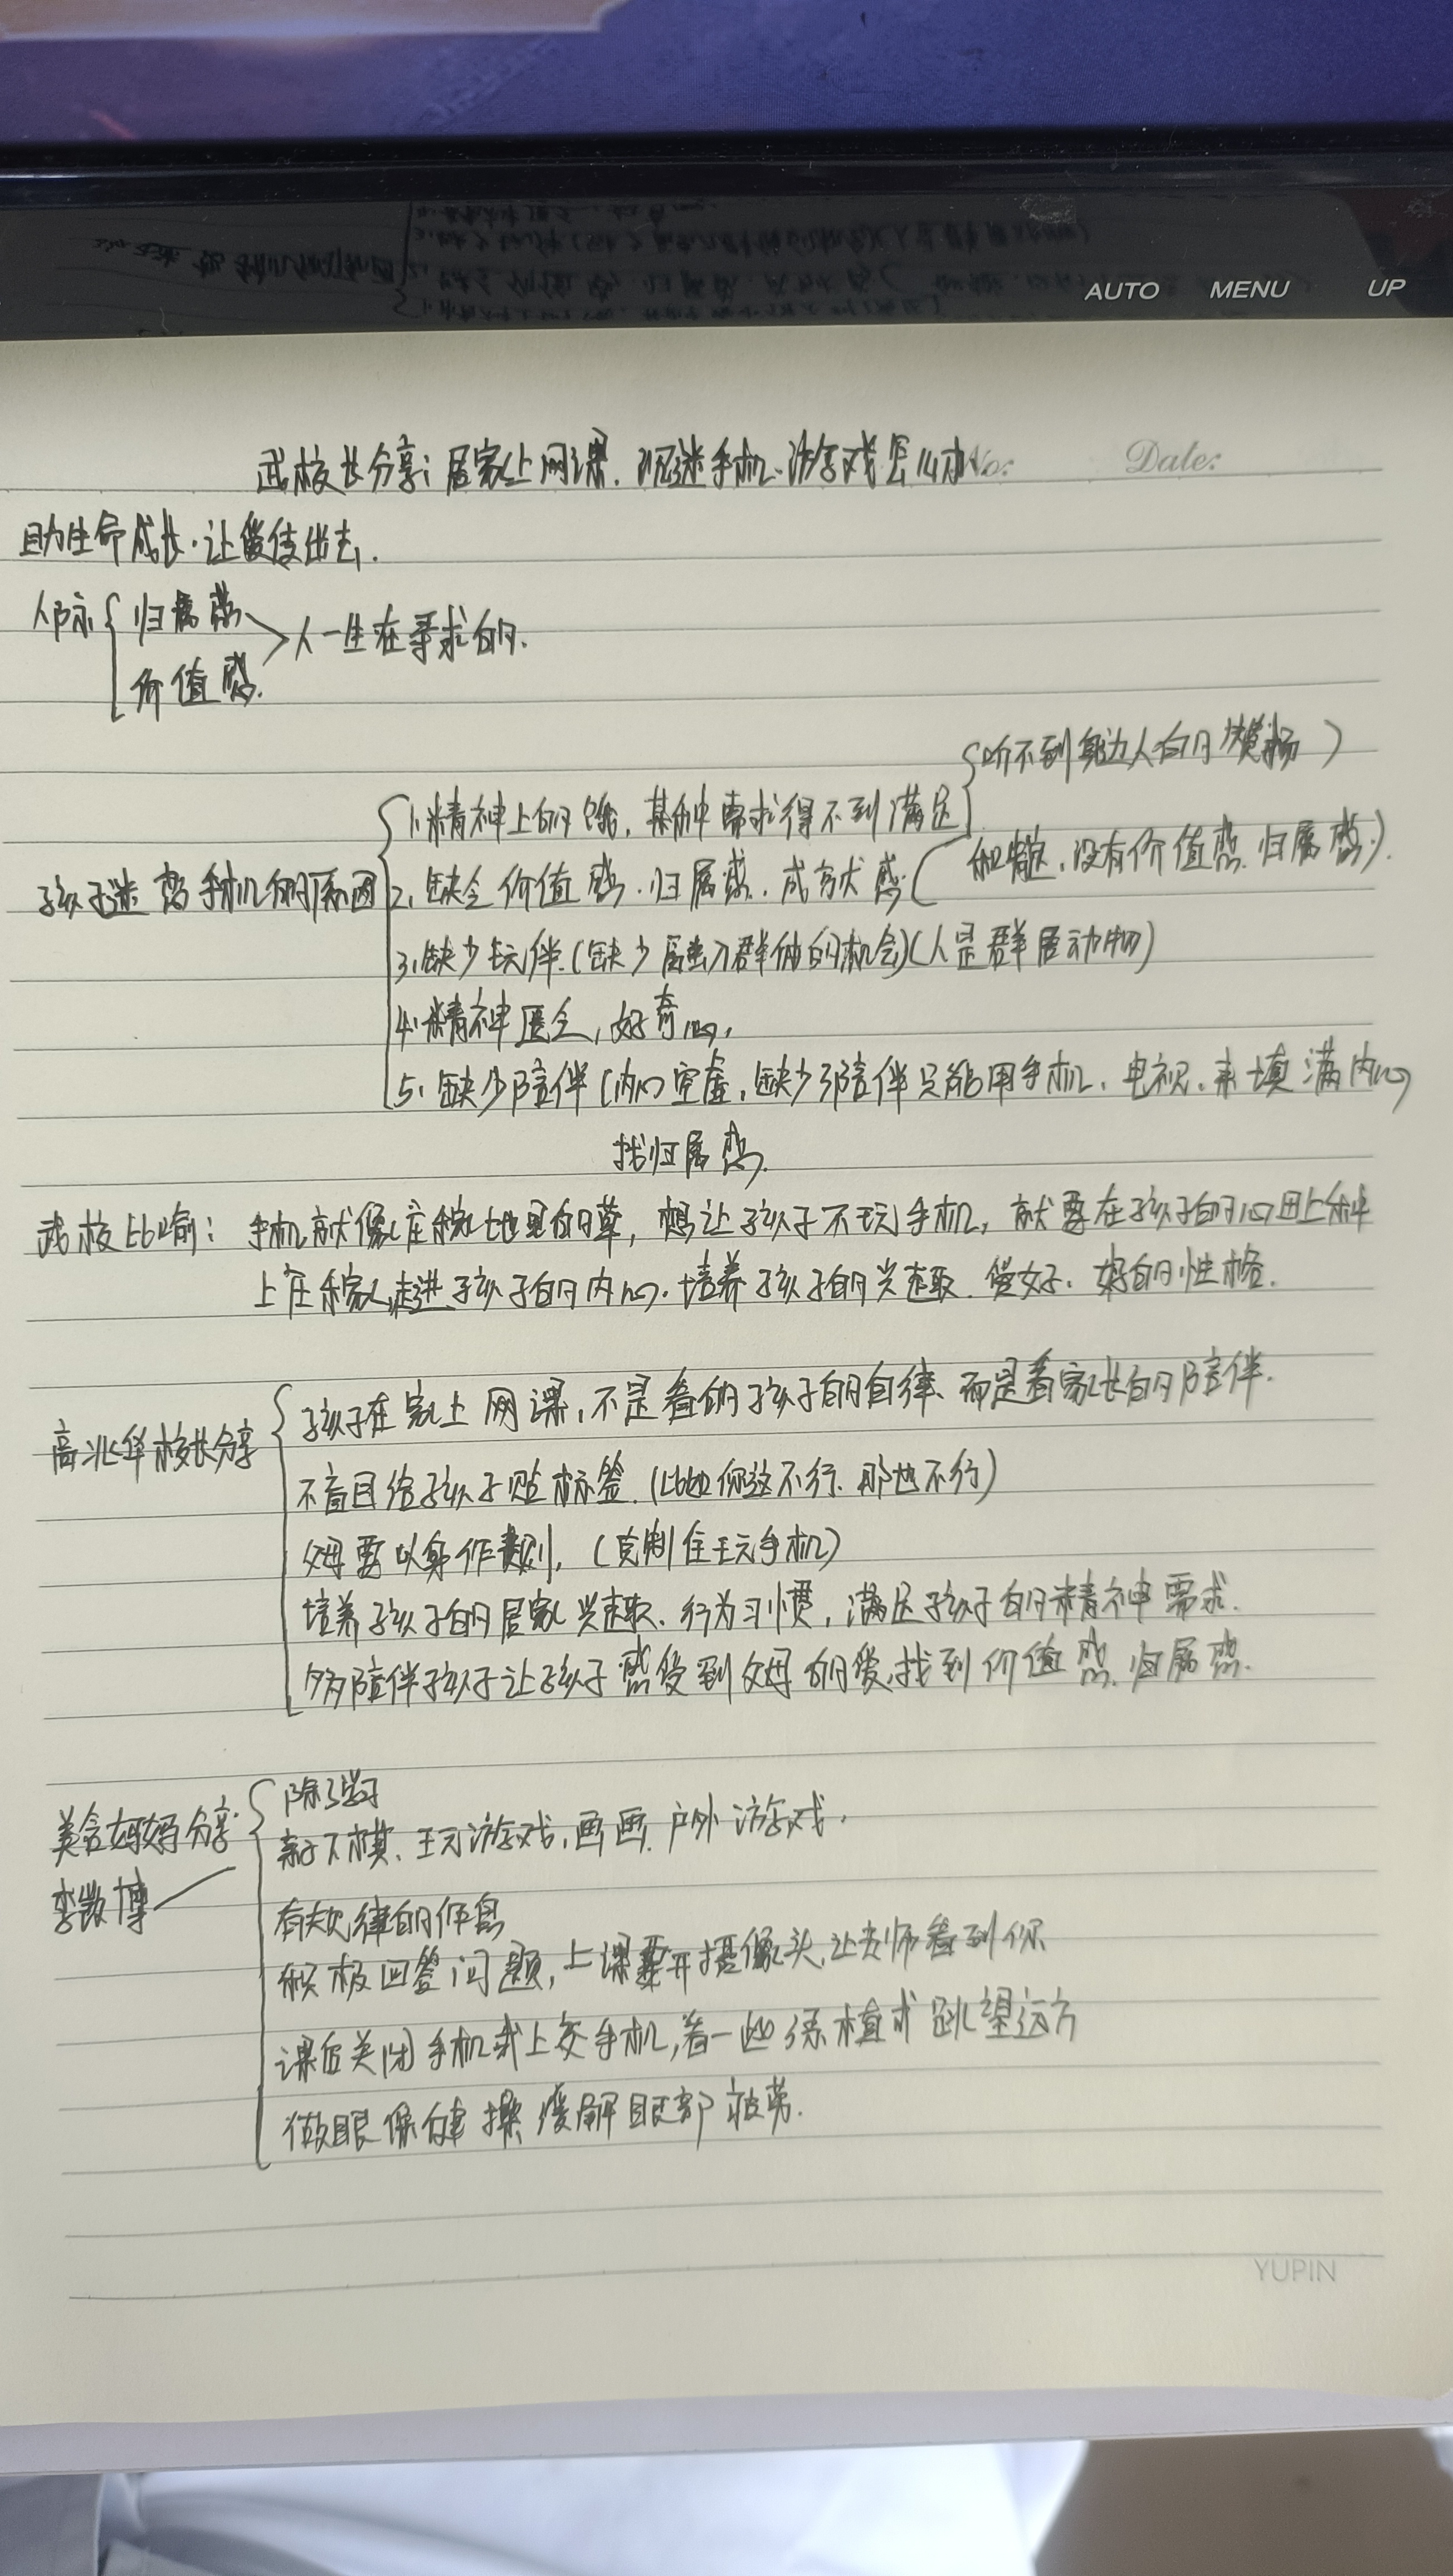 AUTO MENU UP
武校长分享：居家上网课．沉迷手机．游戏怎么办
No: Date:
助生命成长．让爱传出去．
人际 归属感
价值感． 人一生在寻求的．
听不到身边人的赞扬）
1．精神上的饿，某种需求得不到满足
孩子迷恋手机的原因 2．缺乏价值感．归属感．成就感（ 没有价值感．归属感．）．
3．缺少玩伴．（缺少融入群体的机会）（人是群居动物）
4．精神匮乏，好奇心，
5．缺少陪伴（内心空虚，缺少陪伴只能用手机、电视，来填满内心
找归属感．
武校比喻：手机就像庄稼地里的草，想让孩子不玩手机，就要在孩子的心田上种
上庄稼，走进孩子的内心．培养孩子的兴趣．爱好．好的性格．
孩子在家上网课，不是看的孩子的自律、而是看家长的陪伴．
高兆华校长分享
不盲目给孩子贴标签．（比如你这不行．那也不行）
父母要以身作则，（克制住玩手机）
培养孩子的居家兴趣．行为习惯，满足孩子的精神需求．
多陪伴孩子让孩子感受到父母的爱，找到价值感．归属感．
除了学习
美含妈妈分享 亲子下棋、玩游戏，画画．户外游戏．
李微博
有规律的作息
积极回答问题，上课要开摄像头，让老师看到你
课后关闭手机或上交手机，看一些绿植或跳望远方
做眼保健操缓解眼部疲劳．
YUPIN